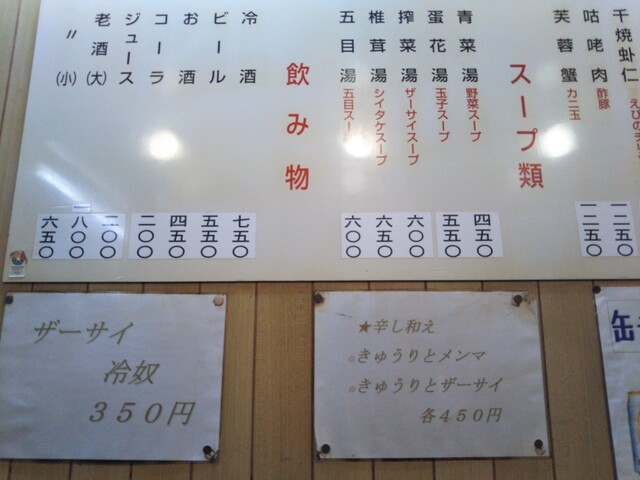 干焼虾仁
咕咾肉 酢豚 一二五〇
芙蓉蟹 カニ玉 一二五〇
スープ類
青菜湯 野菜スープ 四五〇
蛋花湯 玉子スープ 五五〇
搾菜湯 ザーサイスープ 六〇〇
椎茸湯 シイタケスープ 六五〇
五目湯 五目スープ 六〇〇
飲み物
冷酒 七五〇
ビール 五五〇
お酒 四五〇
コーラ 二〇〇
ジュース 二〇〇
老酒(大) 一八〇〇
〃(小) 六五〇
缶
★辛し和え
◎きゅうりとメンマ
◎きゅうりとザーサイ
各450円
ザーサイ
冷奴
350円